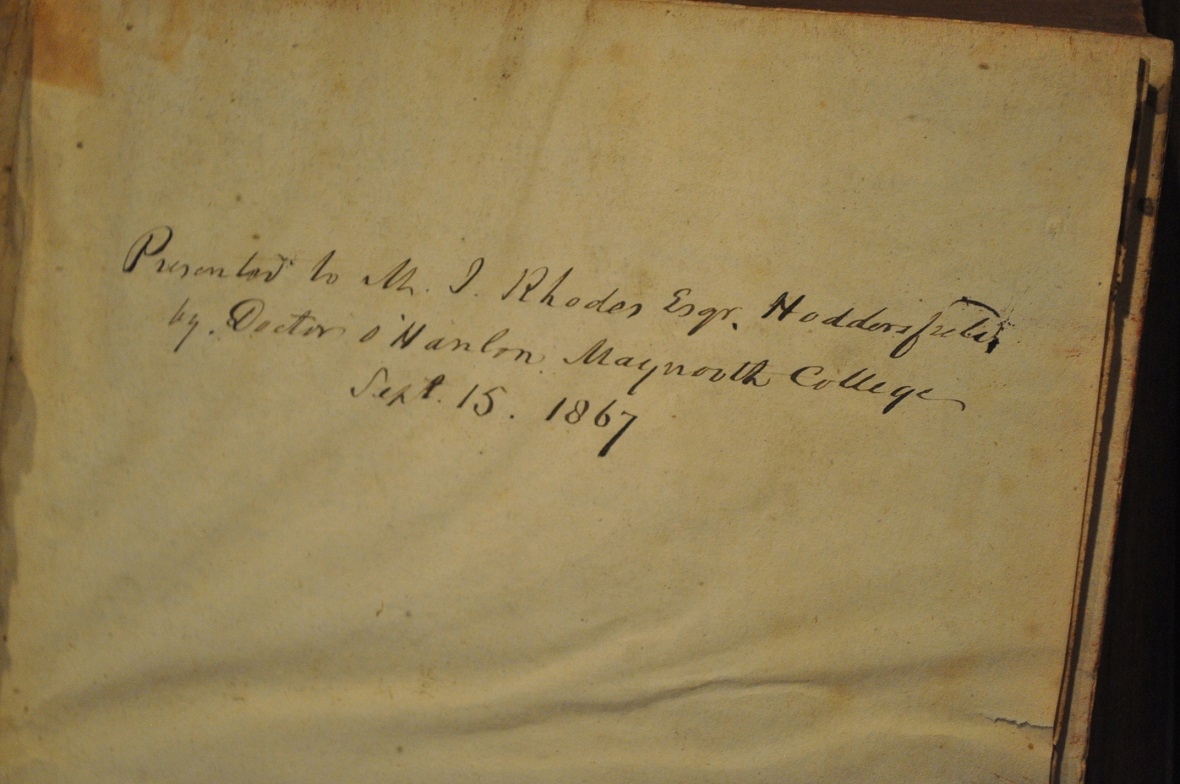 Presented to M. J. Rhodes Esqr. Hoddersfield
by. Doctor O'Hanlon. Maynooth College
Sept. 15. 1867